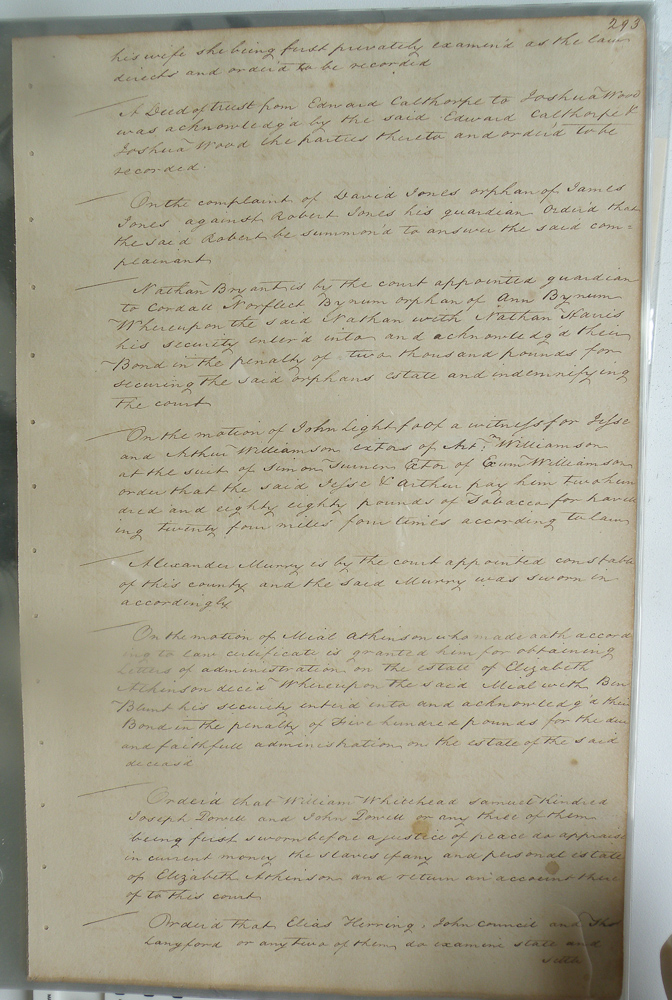 293
his wife she being first privately examin'd as the law
directs and order'd to be recorded
A Deed of trust from Edward Calthorpe to Joshua Wood
was acknowledg'd by the said Edward Calthorpe &
Joshua Wood the parties thereto and order'd to be
recorded.
On the complaint of David Jones orphan of James
Jones against Robert Jones his guardian Order'd that
the said Robert be summon'd to answer the said com=
plainant
Nathan Bryant is by the court appointed guardian
to Cordall Norfleet Bynum orphan of Ann Bynum
Whereupon the said Nathan with Nathan Harris
his security enter'd into and acknowledg'd their
Bond in the penalty of two thousand pounds for
securing the said orphans estate and indemnifying
the court
On the motion of John Lightfoot a witness for Jesse
and Arthur Williamson extors of Art.r Williamson
at the suit of Simon Turner Extor of Exum Williamson
order that the said Jesse & Arthur pay him two hun
dred and eighty eighty pounds of Tobacco for havell
ing twenty four miles four times according to law
Alexander Murry is by the court appointed constable
of this county and the said Murry was sworn in
accordingly
On the motion of Mial Atkinson who made oath accord
ing to law certificate is granted him for obtaining
letters of administration on the estate of Elizabeth
Atkinson dece'd Whereupon the said Mial with Ben
Blunt his security enter'd into and acknowledg'd their
Bond in the penalty of Five hundred pounds for the due
and faithfull administration on the estate of the said
deceased
Order'd that William Whitehead Samuel Kindred
Joseph Dowell and John Dowell or any three of them
being first sworn before a justice of peace do appraise
in current money the slaves if any and personal estate
of Elizabeth Atkinson and return an account there
of to this court
Order'd that Elias Herring, John Council and Tho
Langford or any two of them do examine state and
settle